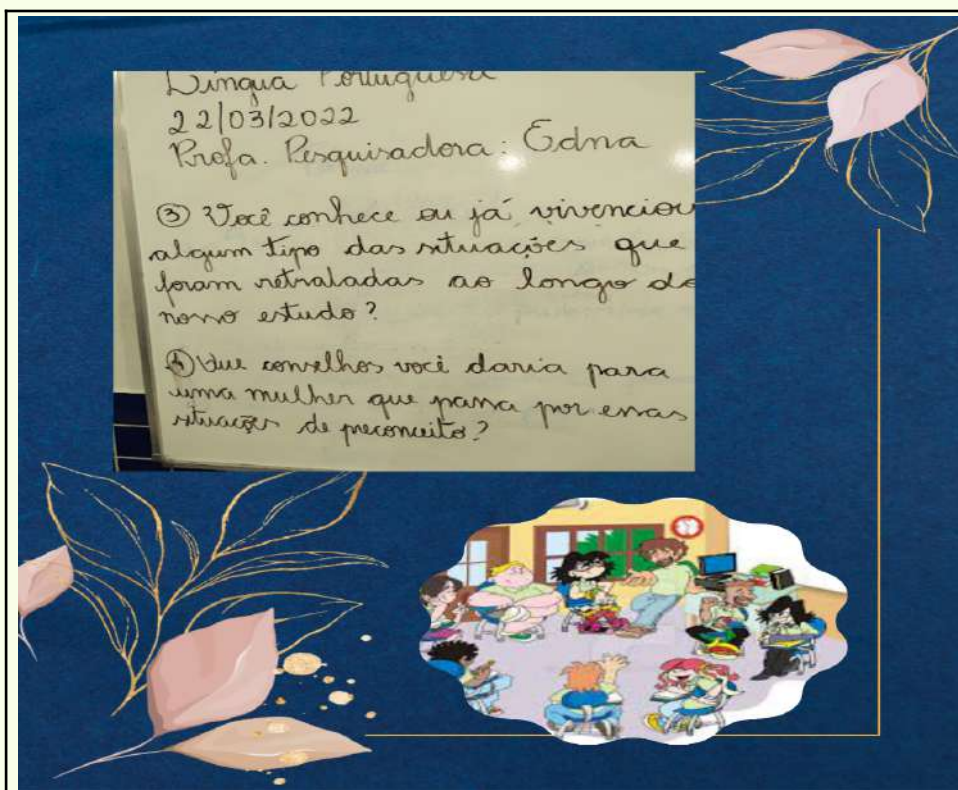 Língua Portuguesa
22/03/2022
Profa. Pesquisadora: Edna
③ Você conhece ou já vivenciou
algum tipo das situações que
foram retratadas ao longo do
nosso estudo?
④ Que conselhos você daria para
uma mulher que passa por essas
situações de preconceito?